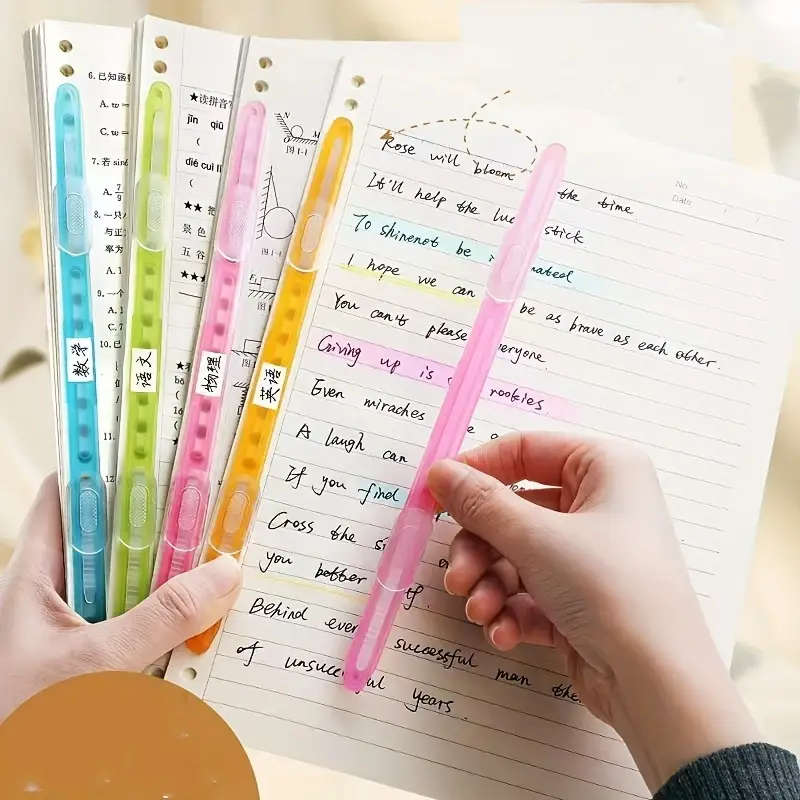 6. 已知函
A. w =
C. w =
7. 若 sin
A. 7/9
8. 一只
与正
率为
A. 1
9. 一个
A. 1.
C. 7.
10. 已
11.
12
数学
★读拼音写
jīn qiū
(
dié cuì lǐ
(
★★ 把
景 色
五 谷
★★★
语文
N
M
图 1-1
图 1-1
F
物理
英语
No
Date
Rose will bloom the time
It'll help the luc stick
To shinenot be i nated
I hope we can be as brave as each other.
You can't please veryone.
Giving up is rookies.
Even miracles e a
A laugh can
If you find
Cross the s
you better f.
Behind ever successful man the
of unsuccessful years.